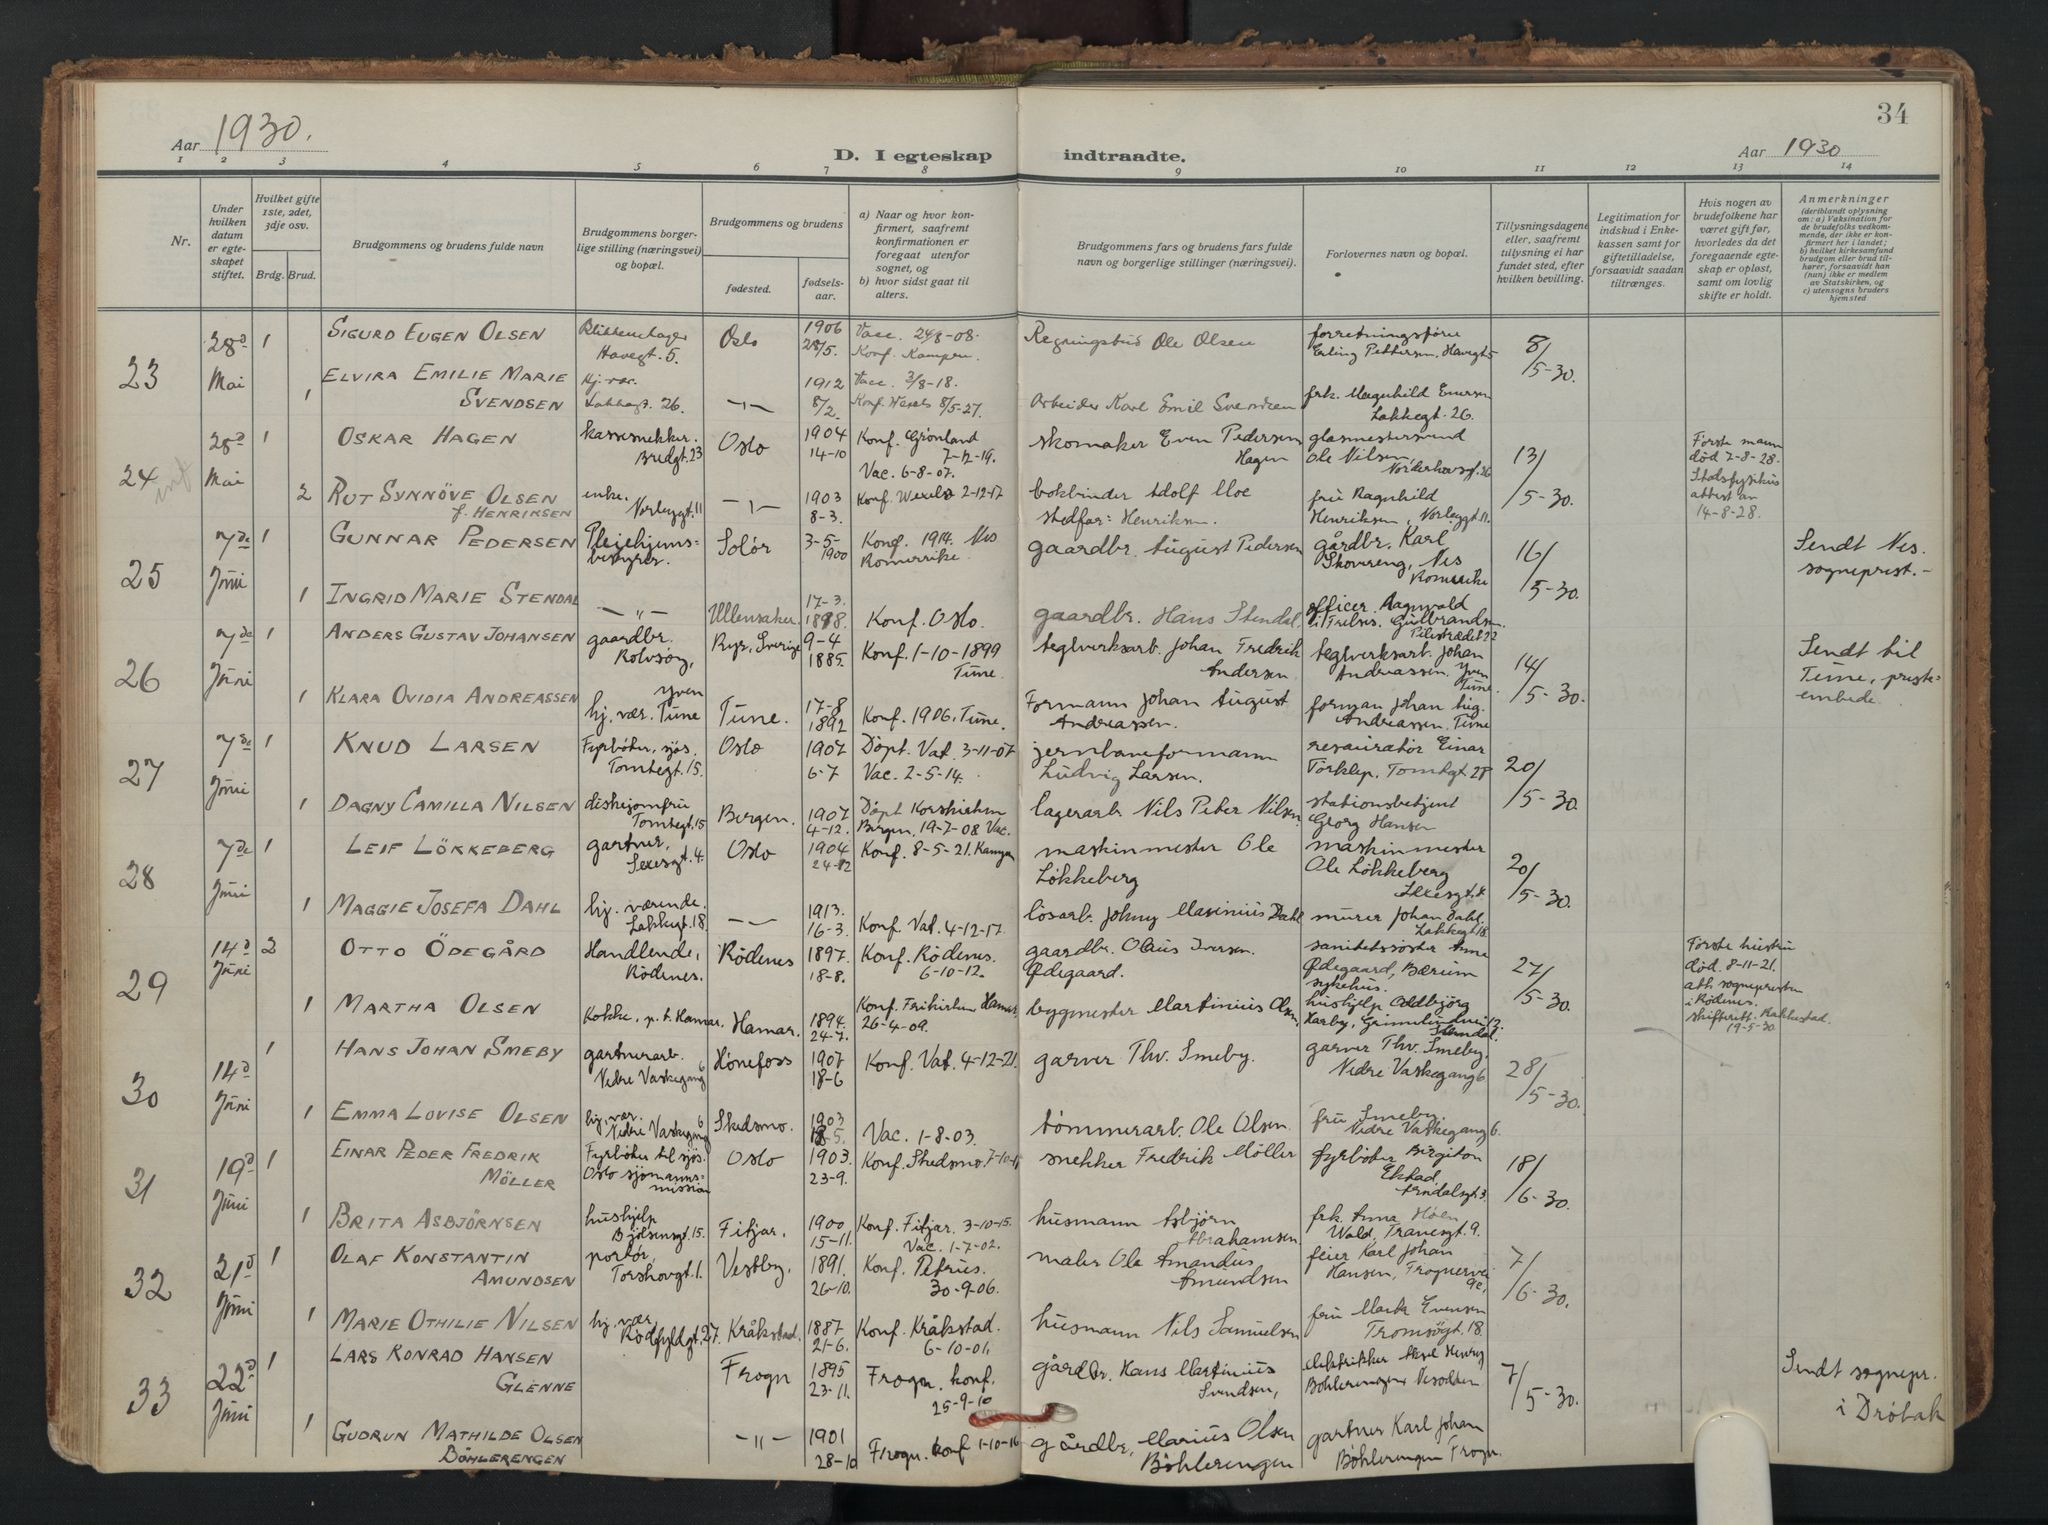 34
Aar 1930.
D. I egteskap indtraadte.
Aar 1930
1 2 3 4 5 6 7 8 9 10 11 12 13 14
Nr.
Under hvilken datum er egteskapet stiftet.
Hvilket gifte 1ste, 2det, 3dje osv.
Brdg. Brud.
Brudgommens og brudens fulde navn
Brudgommens borgerlige stilling (næringsvei) og bopæl.
Brudgommens og brudens
fødested.
fødselsaar.
a) Naar og hvor konfirmert, saafremt konfirmationen er foregaat utenfor sognet, og
b) hvor sidst gaat til alters.
Brudgommens fars og brudens fars fulde navn og borgerlige stillinger (næringsvei).
Forlovernes navn og bopæl.
Tillysningsdagene eller, saafremt tillysning ei har fundet sted, efter hvilken bevilling.
Legitimation for indskud i Enkekassen samt for giftetilladelse, forsaavidt saadan tiltrænges.
Hvis nogen av brudefolkene har været gift før, hvorledes da det foregaaende egteskap er opløst, samt om lovlig skifte er holdt.
Anmerkninger
(deriblandt oplysning om: a) Vaksination for de brudefolks vedkommende, der ikke er konfirmert her i landet; b) hvilket kirkesamfund brudgom eller brud tilhører, forsaavidt han (hun) ikke er medlem av Statskirken, og c) utensogns bruders hjemsted
23
28d Mai
1
SIGURD EUGEN OLSEN
Havegt. 5.
Oslo
1906 28/5.
Vacc. 24/8-08.
Konf. Kampen.
Regningsbud Ole Olsen
forretningsfører
Erling Pettersen, Havegt 5
8/5-30.
1
ELVIRA EMILIE MARIE
SVENDSEN
Hj. vær.
Lakkegt. 26.
-"-
1912 8/2.
Vacc. 3/8-18.
Konf. Wexels 8/5-27.
Arbeider Karl Emil Svendsen
frk. Magnhild Enersen
Lakkegt. 26.
24
28d Mai
1
OSKAR HAGEN
kassesnekker.
Bredgt. 23
Oslo
1904 14-10
Konf. Grönland
7-12-19.
Vac. 6-8-07.
skomaker Even Pedersen
Hagen
glasmestersvend
Ole Nilsen,
Norderhovsgt. 26
13/5-30.
Første mann
død 7-8-28.
Stadsfysikus
attest av
14-8-28.
2
RUT SYNNÖVE OLSEN
f. HENRIKSEN
enke.
Norbygt. 11
-"-
1903 8-3.
Konf. Wexels 2-12-17
bokbinder Adolf Moe
stedfar: Henriksen.
fru Ragnhild
Henriksen, Norbygt. 11.
25
7de Juni
1
GUNNAR PEDERSEN
Pleiehjems-
bestyrer.
Solör
3-5-1900
Konf. 1914. Nes
Romerrike
gaardbr. August Pedersen
gårdbr. Karl
Skovereng, Nes
Romerike
16/5-30.
Sendt Nes.
sogneprest.-
1
INGRID MARIE STENDAL
-"-
Ullensaker.
17-3. 1898.
Konf. Oslo.
gaardbr. Hans Stendal.
officer Ragnvald
i Frelses. Gulbrandsen.
Pilestrædet 22
26
7de Juni
1
ANDERS GUSTAV JOHANSEN
gaardbr.
Rolvsöy,
Ryr, Sverige
9-4 1885.
Konf. 1-10-1899
Tune.
teglverksarb. Johan Fredrik
Andersen
teglverksarb. Johan
Andreassen. Yven
Tune.
14/5-30.
Sendt til
Tune, preste-
embede
1
KLARA OVIDIA ANDREASSEN
Yven
hj. vær. Tune
Tune.
17-8 1892
Konf. 1906, Tune.
Formann Johan August
Andreassen.
forman Johan Aug.
Andreassen. Tune
27
7de Juni
1
KNUD LARSEN
Fyrbøter, sjøs.
Tomtegt. 15.
Oslo
1907 6-7
Döpt. Vat. 3-11-07
Vac. 2-5-14.
jernbaneformann
Ludvig Larsen.
restauratör Einar
Torklep. Tomtegt. 28
20/5-30.
1
DAGNY CAMILLA NILSEN
diskejomfru
Tomtegt. 15
Bergen.
1907 4-12.
Döpt Korskirken
Bergen, 19-7-08 Vac.
lagerarb. Nils Peter Nilsen.
stationsbetjent
Georg Hansen
28
7de Juni
1
LEIF LÖKKEBERG
gartner,
Sexesgt. 4.
Oslo
1904 24-12
Konf. 8-5-21. Kampen
maskinmester Ole
Løkkeberg
maskinmester
Ole Løkkeberg
Sexesgt. 4
20/5-30.
1
MAGGIE JOSEFA DAHL
hj. værende.
Lakkegt. 18
-"-
1913. 16-3.
Konf. Vat. 4-12-17.
lösarb. Johny Marinius Dahl
murer Johan Dahl.
Lakkegt 18.
29
14d Juni
2
OTTO ÖDEGÅRD
Handlende,
Rödenes.
Rödenes
1897. 18-8.
Konf. Rödenes.
6-10-12.
gaardbr. Olaus Iversen.
Ødegaard.
sanitetssöster Anne
Ødegaard, Bærum
sykehus.
27/5-30.
Første hustru
död. 8-11-21.
att. sognepresten
i Rödenes.
skifterett. Rakkestad.
19-5-30.
1
MARTHA OLSEN
Kokke, p.t. Hamar.
Hamar.
1894. 24-7.
Konf. Frikirken Hamar,
26-4-09.
bygmester Martinius Olsen,
hushjelp Oddbjörg
30
14d Juni
1
HANS JOHAN SMEBY
gartnerarb.
Nedre Vaskegang 6
Hönefoss
1907 18-6
Konf. Vat. 4-12-21.
garver Thv. Smeby.
garver Thv. Smeby,
Nedre Vaskegang 6
28/5-30.
1
EMMA LOVISE OLSEN
hj. vær.
Nedre Vaskegang 6
Skedsmo.
1903 18-5.
Vac. 1-8-03.
tømmerarb. Ole Olsen.
fru Smeby.
Nedre Vaskegang 6.
31
19d Juni
1
EINAR PEDER FREDRIK
MÖLLER
Fyrböter til sjös.
Oslo sjømanns-
mission
Oslo
1903. 23-9.
Konf. Skedsmo.
snekker Fredrik Möller
fyrböter Birgiton
Ekstad,
Arendalsgt. 3.
18/6-30.
1
BRITA ASBJÖRNSEN
hushjelp
Bjölsensgt. 15.
Fitjar.
1900 15-11.
Konf. Fitjar. 3-10-15.
Vac. 1-7-02.
husmann Asbjörn
Abrahamsen.
frk. Anna Høen
Wold, Tranesgt. 9.
32
21d Juni
1
OLAF KONSTANTIN
AMUNDSEN
portör,
Torshovgt. 1.
Vestby.
1891. 26-10.
Konf. Petrus.
30-9-06.
maler Ole Amandus
Amundsen
feier Karl Johan
Hansen, Trognervei
9c,
7/6-30.
1
MARIE OTHILIE NILSEN
hj. vær.
Rodfyldgt. 27.
Kråkstad.
1887 21-6.
Konf. Kråkstad.
6-10-01.
husmann Nils Samuelsen
fru Marta Evensen
Tromsøgt. 18.
33
22d Juni
1
LARS KONRAD HANSEN
GLENNE
Frogn
1895 23-11.
Frogn. konf.
25-9-10
gårdbr. Hans Martinius
Svendsen,
elektrikker Aksel Henry
Böhlerengen Nesodden
7/5-30.
Sendt sognepr.
i Dröbak
1
GUDRUN MATHILDE OLSEN
BÖHLERENGEN
-"-
1901 28-10
Frogn. konf 1-10-16
gårdbr. Marius Olsen
Böhlerengen
gartner Karl Johan
Böhlerengen Frogn.